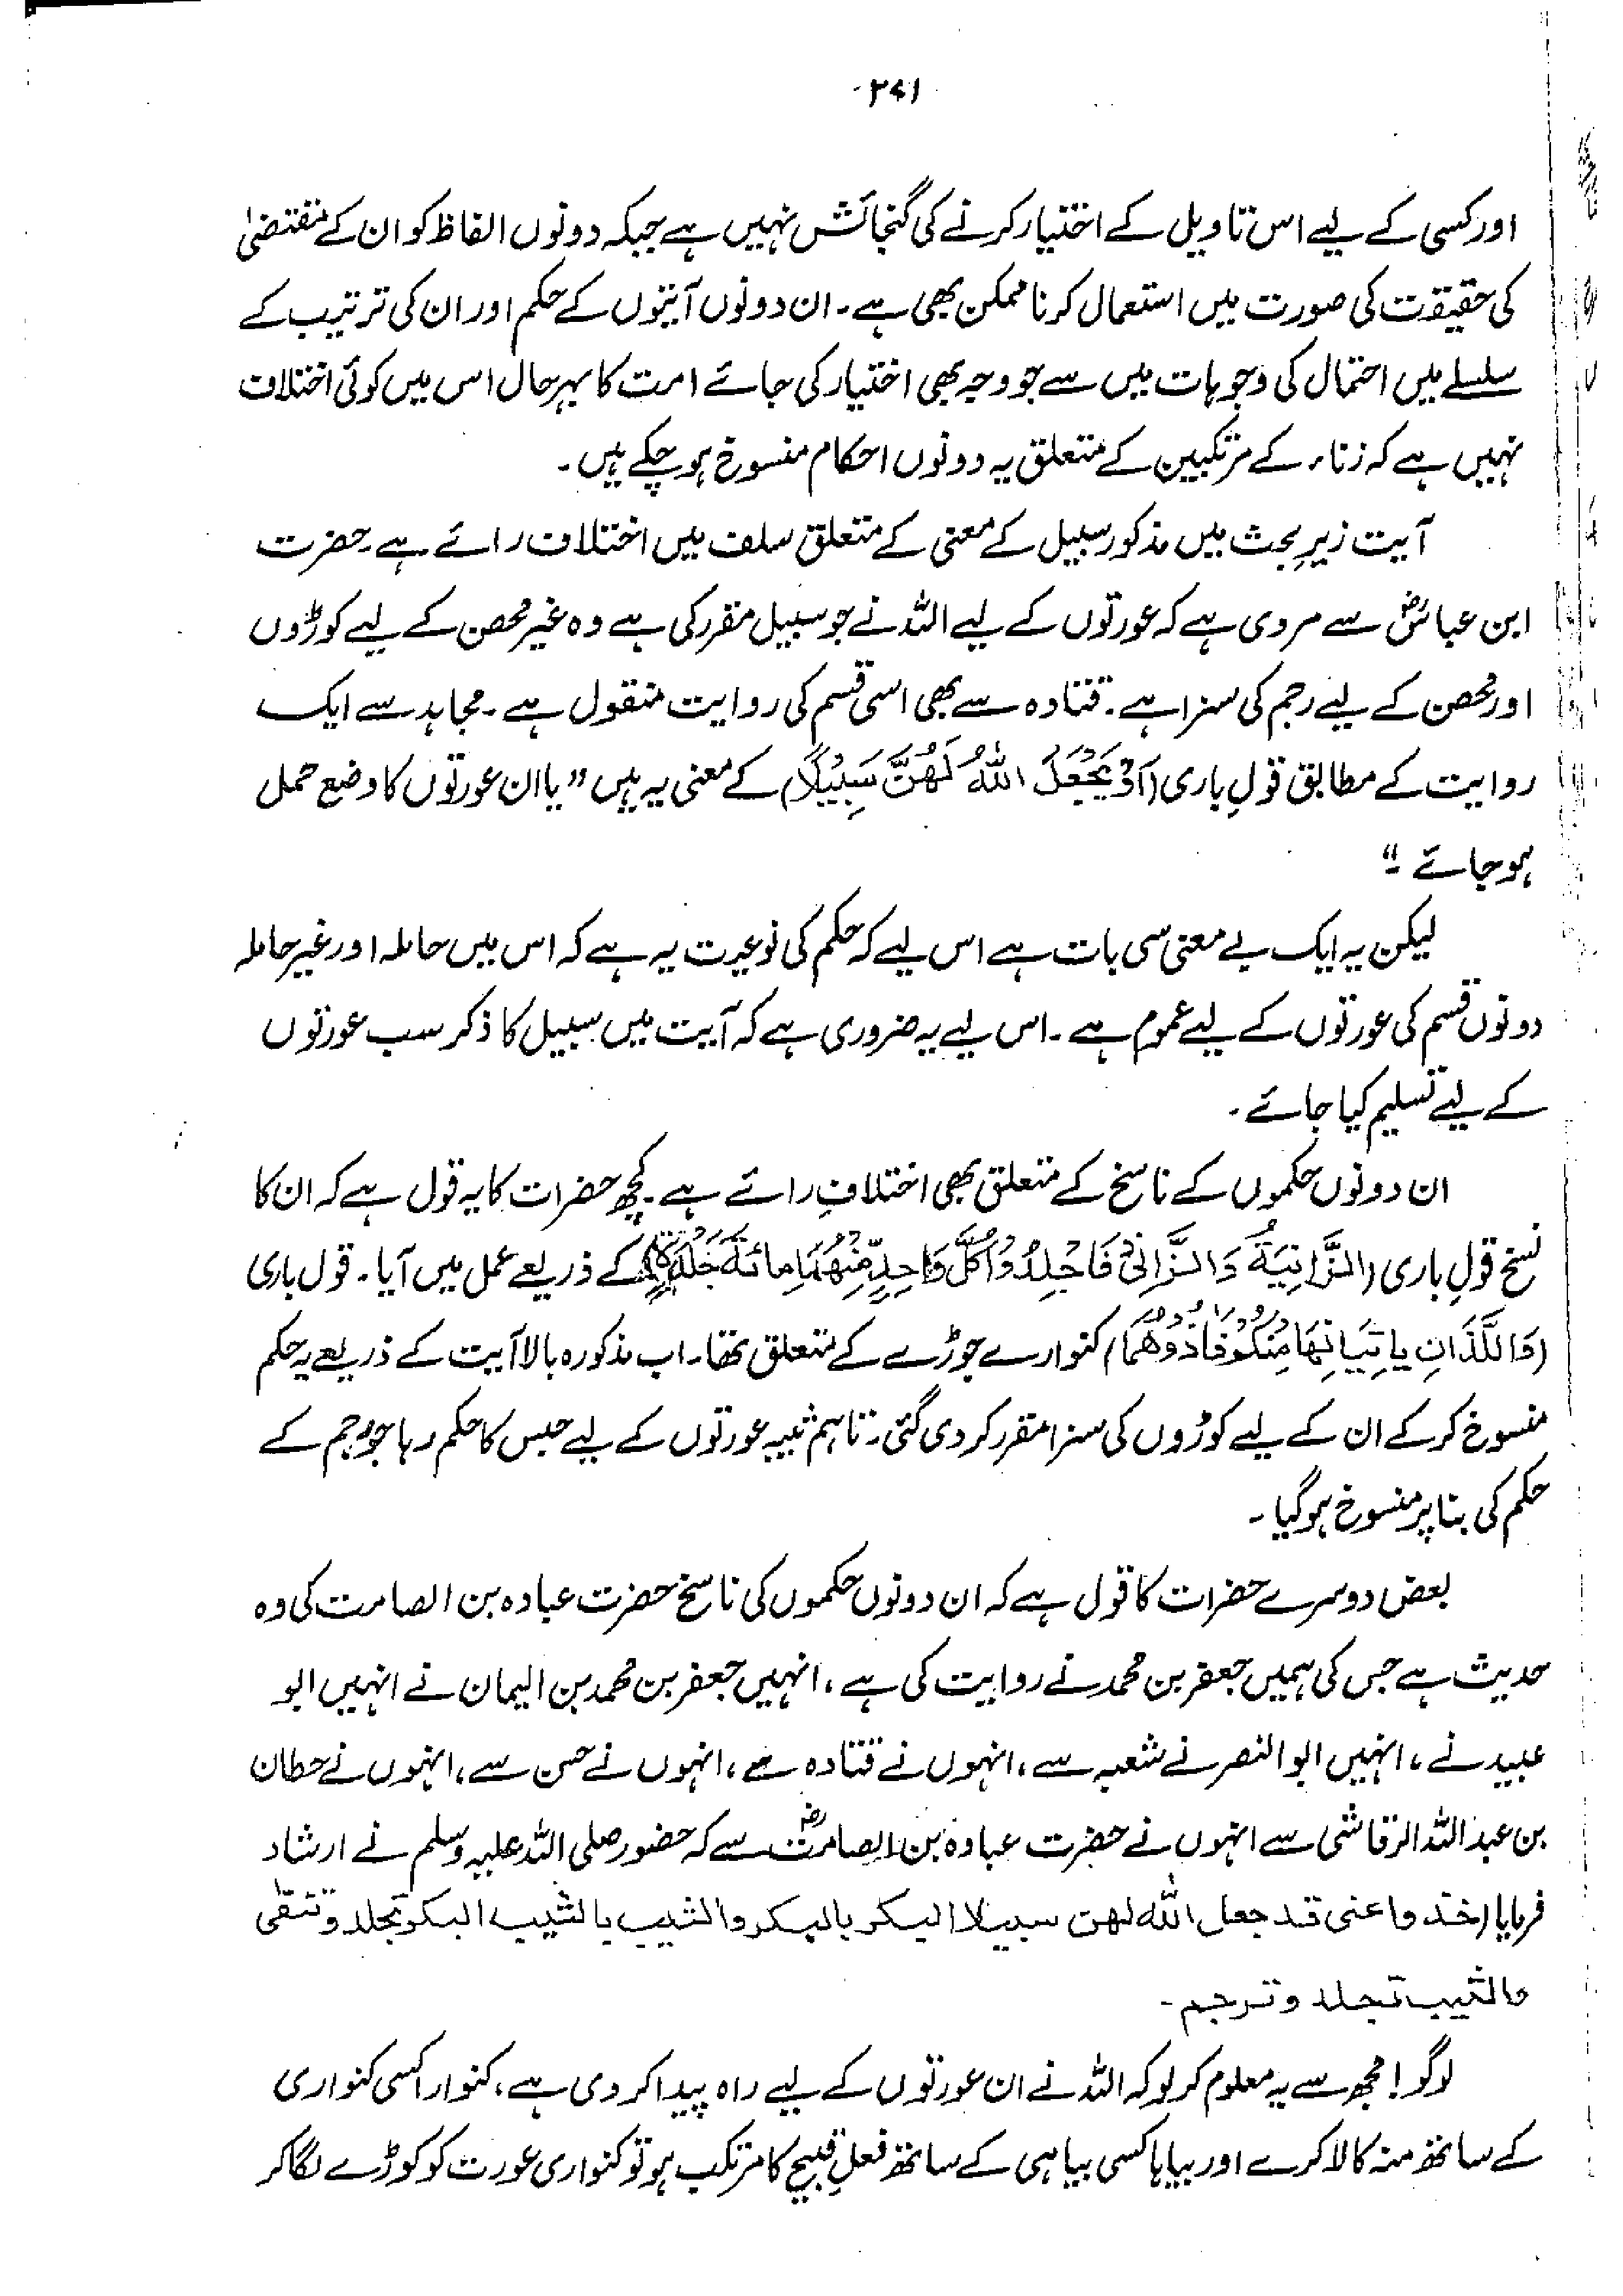 ۲۷۱
اور کسی کے لیے اس تاویل کے اختیار کرنے کی گنجائش نہیں ہے جبکہ دونوں الفاظ کو ان کے مقتضیٰ
کی حقیقت کی صورت میں استعمال کرنا ممکن بھی ہے۔ ان دونوں آیتوں کے حکم اور ان کی ترتیب کے
سلسلے میں احتمال کی وجوہات میں سے جو وجہ بھی اختیار کی جائے امت کا بہرحال اس میں کوئی اختلاف
نہیں ہے کہ زناء کے مرتکبین کے متعلق یہ دونوں احکام منسوخ ہو چکے ہیں۔
آیت زیرِ بحث میں مذکور سبیل کے معنی کے متعلق سلف میں اختلاف رائے ہے۔ حضرت
ابن عباسؓ سے مروی ہے کہ عورتوں کے لیے اللہ نے جو سبیل مقرر کی ہے وہ غیر محصن کے لیے کوڑوں
اور محصن کے لیے رجم کی سزا ہے۔ قتادہ سے بھی اسی قسم کی روایت منقول ہے۔ مجاہد سے ایک
روایت کے مطابق قولِ باری (اَوْ یَجْعَلَ اللہُ لَھُنَّ سَبِیْلًا) کے معنی یہ ہیں "یا ان عورتوں کا وضع حمل
ہو جائے۔"
لیکن یہ ایک بے معنی سی بات ہے اس لیے کہ حکم کی نوعیت یہ ہے کہ اس میں حاملہ اور غیر حاملہ
دونوں قسم کی عورتوں کے لیے عموم ہے۔ اس لیے یہ ضروری ہے کہ آیت میں سبیل کا ذکر سب عورتوں
کے لیے تسلیم کیا جائے۔
ان دونوں حکموں کے ناسخ کے متعلق بھی اختلافِ رائے ہے۔ کچھ حضرات کا یہ قول ہے کہ ان کا
نسخ قولِ باری (اَلزَّانِیَۃُ وَالزَّانِیْ فَاجْلِدُوْا کُلَّ وَاحِدٍ مِّنْھُمَا مِائَۃَ جَلْدَۃٍ) کے ذریعے عمل میں آیا۔ قول باری
(وَاللَّذَانِ یَاْتِیَانِھَا مِنْکُمْ فَاٰذُوْھُمَا) کنوارے جوڑے کے متعلق تھا۔ اب مذکورہ بالا آیت کے ذریعے یہ حکم
منسوخ کر کے ان کے لیے کوڑوں کی سزا مقرر کر دی گئی۔ تاہم ثیبہ عورتوں کے لیے حبس کا حکم رہا جو رجم کے
حکم کی بنا پر منسوخ ہو گیا۔
بعض دوسرے حضرات کا قول ہے کہ ان دونوں حکموں کی ناسخ حضرت عبادہ بن الصامت کی وہ
حدیث ہے جس کی ہمیں جعفر بن محمد نے روایت کی ہے، انہیں جعفر بن محمد بن الیمان نے انہیں ابو
عبید نے، انہیں ابوالنصر نے شعبہ سے، انہوں نے قتادہ سے، انہوں نے حسن سے، انہوں نے حطان
بن عبداللہ الرقاشی سے انہوں نے حضرت عبادہ بن الصامتؓ سے کہ حضور صلی اللہ علیہ وسلم نے ارشاد
فرمایا (خذوا عنی قد جعل اللہ لھن سبیلا البکر بالبکر والثیب بالثیب البکر تجلد و تنفی
والثیب تجلد و ترجم۔
لوگو! مجھ سے یہ معلوم کر لو کہ اللہ نے ان عورتوں کے لیے راہ پیدا کر دی ہے، کنوارا کسی کنواری
کے ساتھ منہ کالا کرے اور بیاہا کسی بیاہی کے ساتھ فعلِ قبیح کا مرتکب ہو تو کنواری عورت کو کوڑے لگا کر